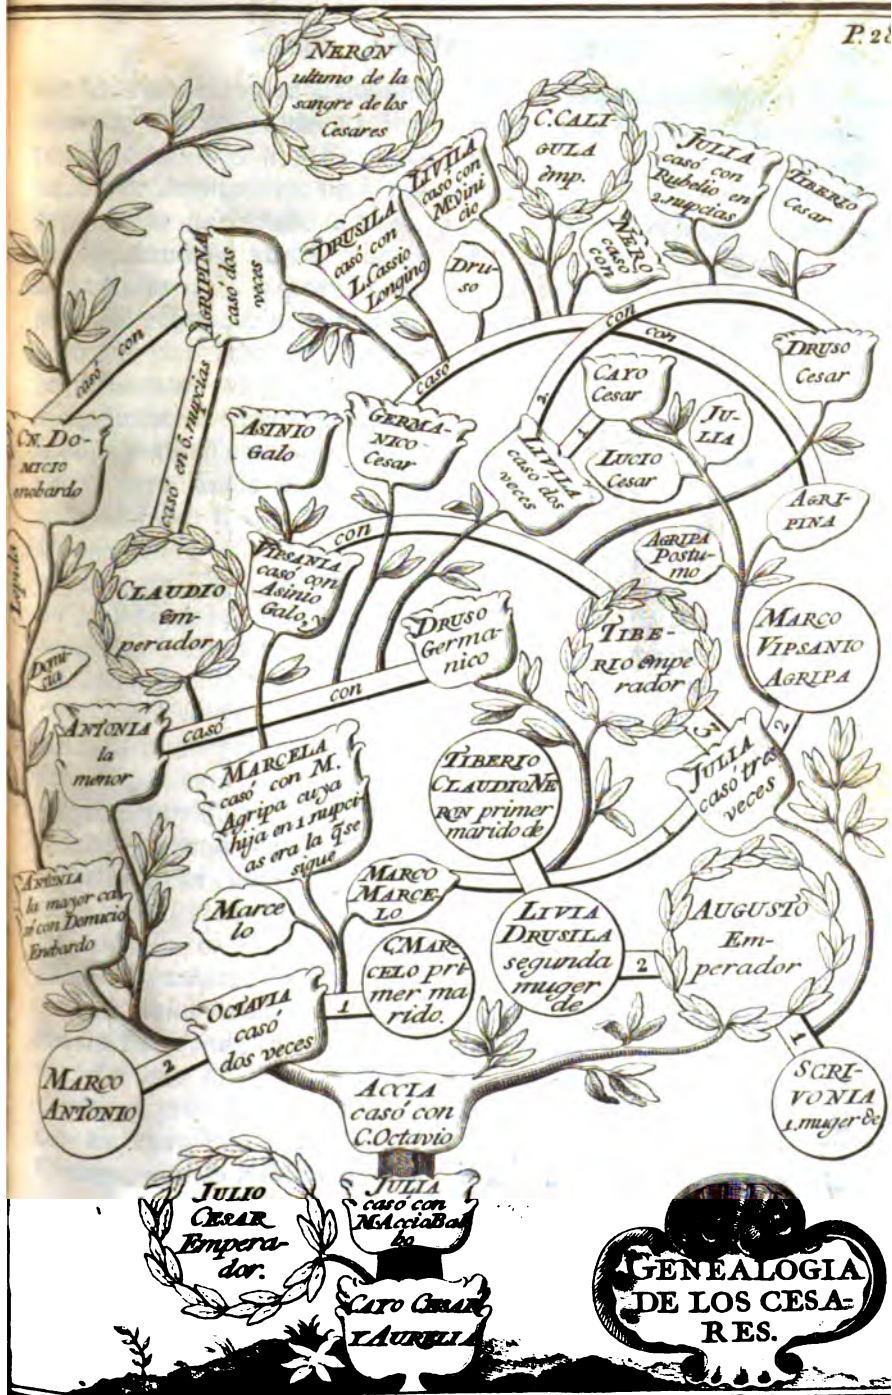 P. 28
NERON
ultimo de la
sangre de los
Cesares
C. CALI
GULA
emp.
JULIA
casó con
Rubelio en
2. nupcias
TIBERIO
Cesar
LIVILA
casó con
M. Vini
cio
DRUSILA
casó con
L. Cassio
Longino
Dru-
so
NERO
casó
con
AGRIPINA
casó dos
veces
casó con
casó en 6. nupcias
casó
con
con
2.
1
CAYO
Cesar
DRUSO
Cesar
JU-
LIA
LUCIO
Cesar
CN. DO-
MICIO
enobardo
ASINIO
Galo
GERMA-
NICO
Cesar
LIVILA
casó dos
veces
AGRI-
PINA
AGRIPA
Postu-
mo
Lepida
CLAUDIO
em-
perador
VIPSANIA
casó con
Asinio
Galo, y
con
DRUSO
Germa-
nico
TIBE-
RIO empe
rador
MARCO
VIPSANIO
AGRIPA
Domi-
cia
ANTONIA
la
menor
casó
con
MARCELA
casó con M.
Agripa cuya
hija en 1 nupci-
as era la q̃ se
sigue
TIBERIO
CLAUDIO NE
RON primer
marido de
3
2
1
JULIA
casó tres
veces
ANTONIA
la mayor ca
só con Domicio
Enobardo
Marce
lo
MARCO
MARCE-
LO
LIVIA
DRUSILA
segunda
muger
de
2
AUGUSTO
Em-
perador
OCTAVIA
casó
dos veces
1
C. MAR-
CELO pri
mer ma
rido.
2
MARCO
ANTONIO
ACCIA
casó con
C. Octavio
1
SCRI-
VONIA
1. muger de
JULIO
CESAR
Empera-
dor.
JULIA
caso con
M. Accio Bal
bo
CAYO CESAR
Y AURELIA
GENEALOGIA
DE LOS CESA-
RES.